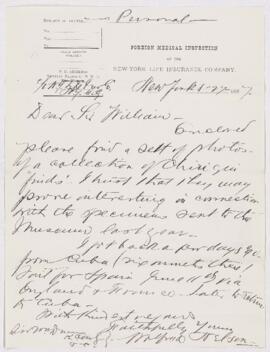 Personal
FOREIGN MEDICAL INSPECTION
OF THE
NEW YORK LIFE INSURANCE COMPANY.
New York
Dear Sir William -
Enclosed
please find a sett of photos
of a collection of Chiriqui
finds. I trust that they may
prove interesting in connection
with the specimens sent to the
Museum last year.
I got back a few days ago
from Cuba
sail for Spain June
England & to return
to Cuba.
With kindest regards
Faithfully Yours
Wolfred Nelson.
Sir Wm Dawson